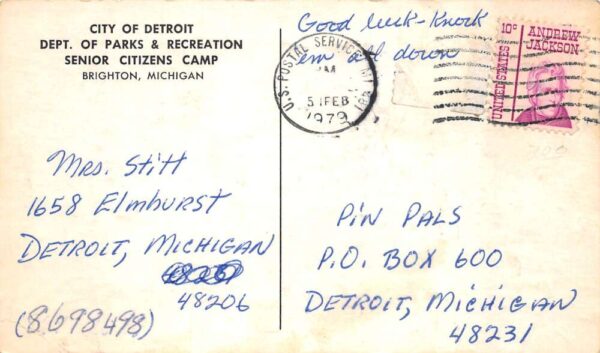 CITY OF DETROIT
DEPT. OF PARKS & RECREATION
SENIOR CITIZENS CAMP
BRIGHTON, MICHIGAN
Good luck-Knock
'em all down
U.S. POSTAL SERVICE MI
PM
5 FEB
1979
481
10¢ ANDREW
JACKSON
UNITED STATES
Mrs. Stitt
1658 Elmhurst
DETROIT, MICHIGAN
48206
(8698498)
PIN PALS
P.O. BOX 600
DETROIT, MICHIGAN
48231